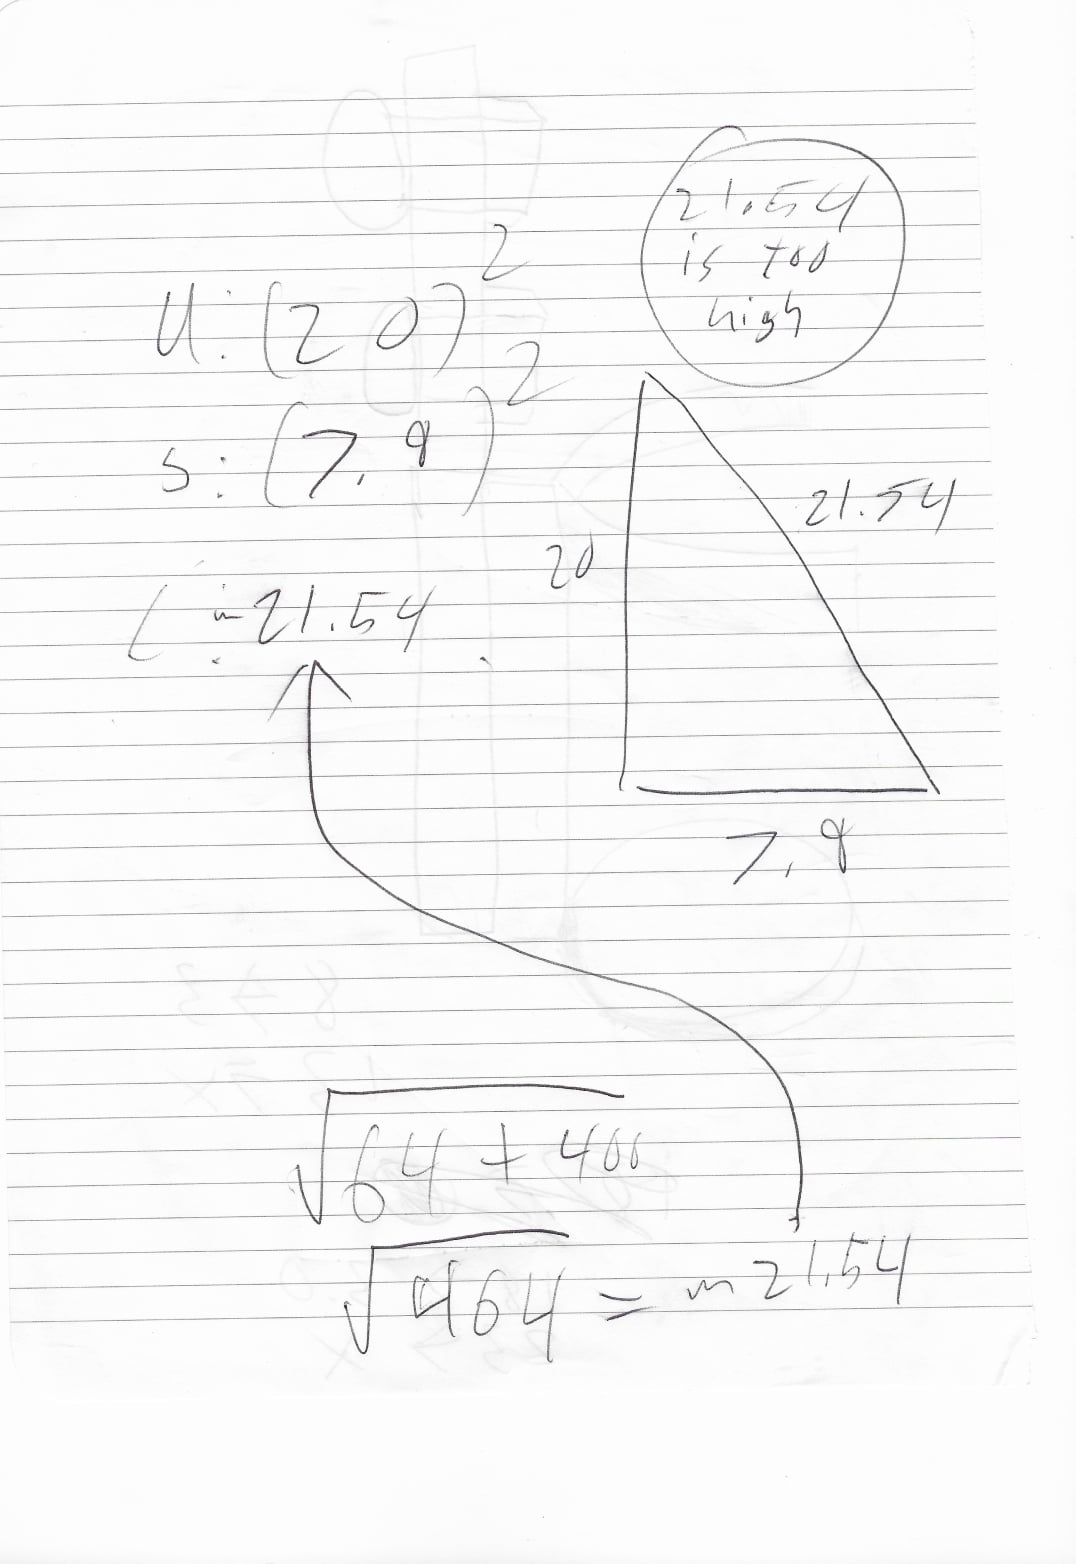 21.54
is too
high
U: (20)²
S: (7.9)²
L: ~21.54
20
21.54
7.9
√64 + 400
√464 = ~21.54